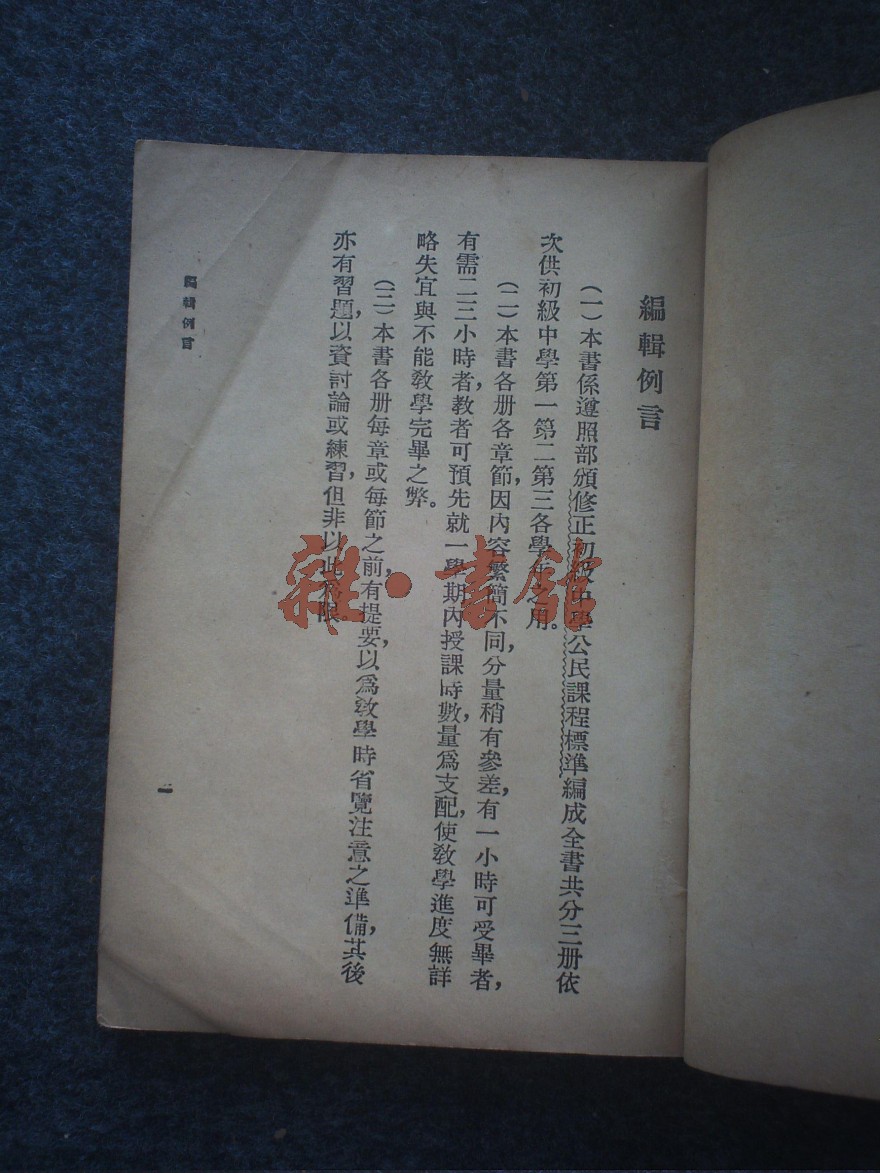 編輯例言
(一)本書係遵照部頒修正初級中學公民課程標準編成全書共分三册依
次供初級中學第一第二第三各學年之用。
(二)本書各册各章節,因內容繁簡不同,分量稍有參差,有一小時可受畢者,
有需二三小時者,教者可預先就一學期內授課時數,量爲支配,使教學進度無詳
略失宜與不能教學完畢之弊。
(三)本書各册每章或每節之前,有提要,以爲教學時省覽注意之準備,其後
亦有習題,以資討論或練習,但非以此爲限
編輯例言
一
雜·書館